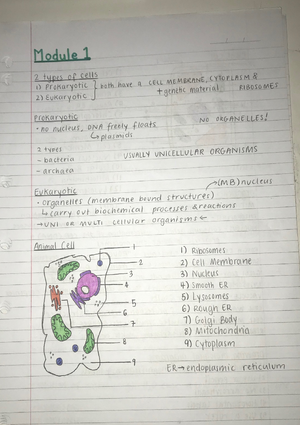 Module 1
2 types of cells
1) Prokaryotic } both have a CELL MEMBRANE, CYTOPLASM &
2) Eukaryotic + genetic material RIBOSOMES
Prokaryotic NO ORGANELLES!
• no nucleus, DNA freely floats
↳ plasmids
2 types
- bacteria USUALLY UNICELLULAR ORGANISMS
- archaea
Eukaryotic → (MB) nucleus
• organelles (membrane bound structures)
↳ carry out biochemical processes & reactions
→ UNI OR MULTI cellular organisms ←
Animal Cell
1
2
3
4
5
6
7
8
9
1) Ribosomes
2) Cell Membrane
3) Nucleus
4) Smooth ER
5) Lysosomes
6) Rough ER
7) Golgi Body
8) Mitochondria
9) Cytoplasm
ER → endoplasmic reticulum